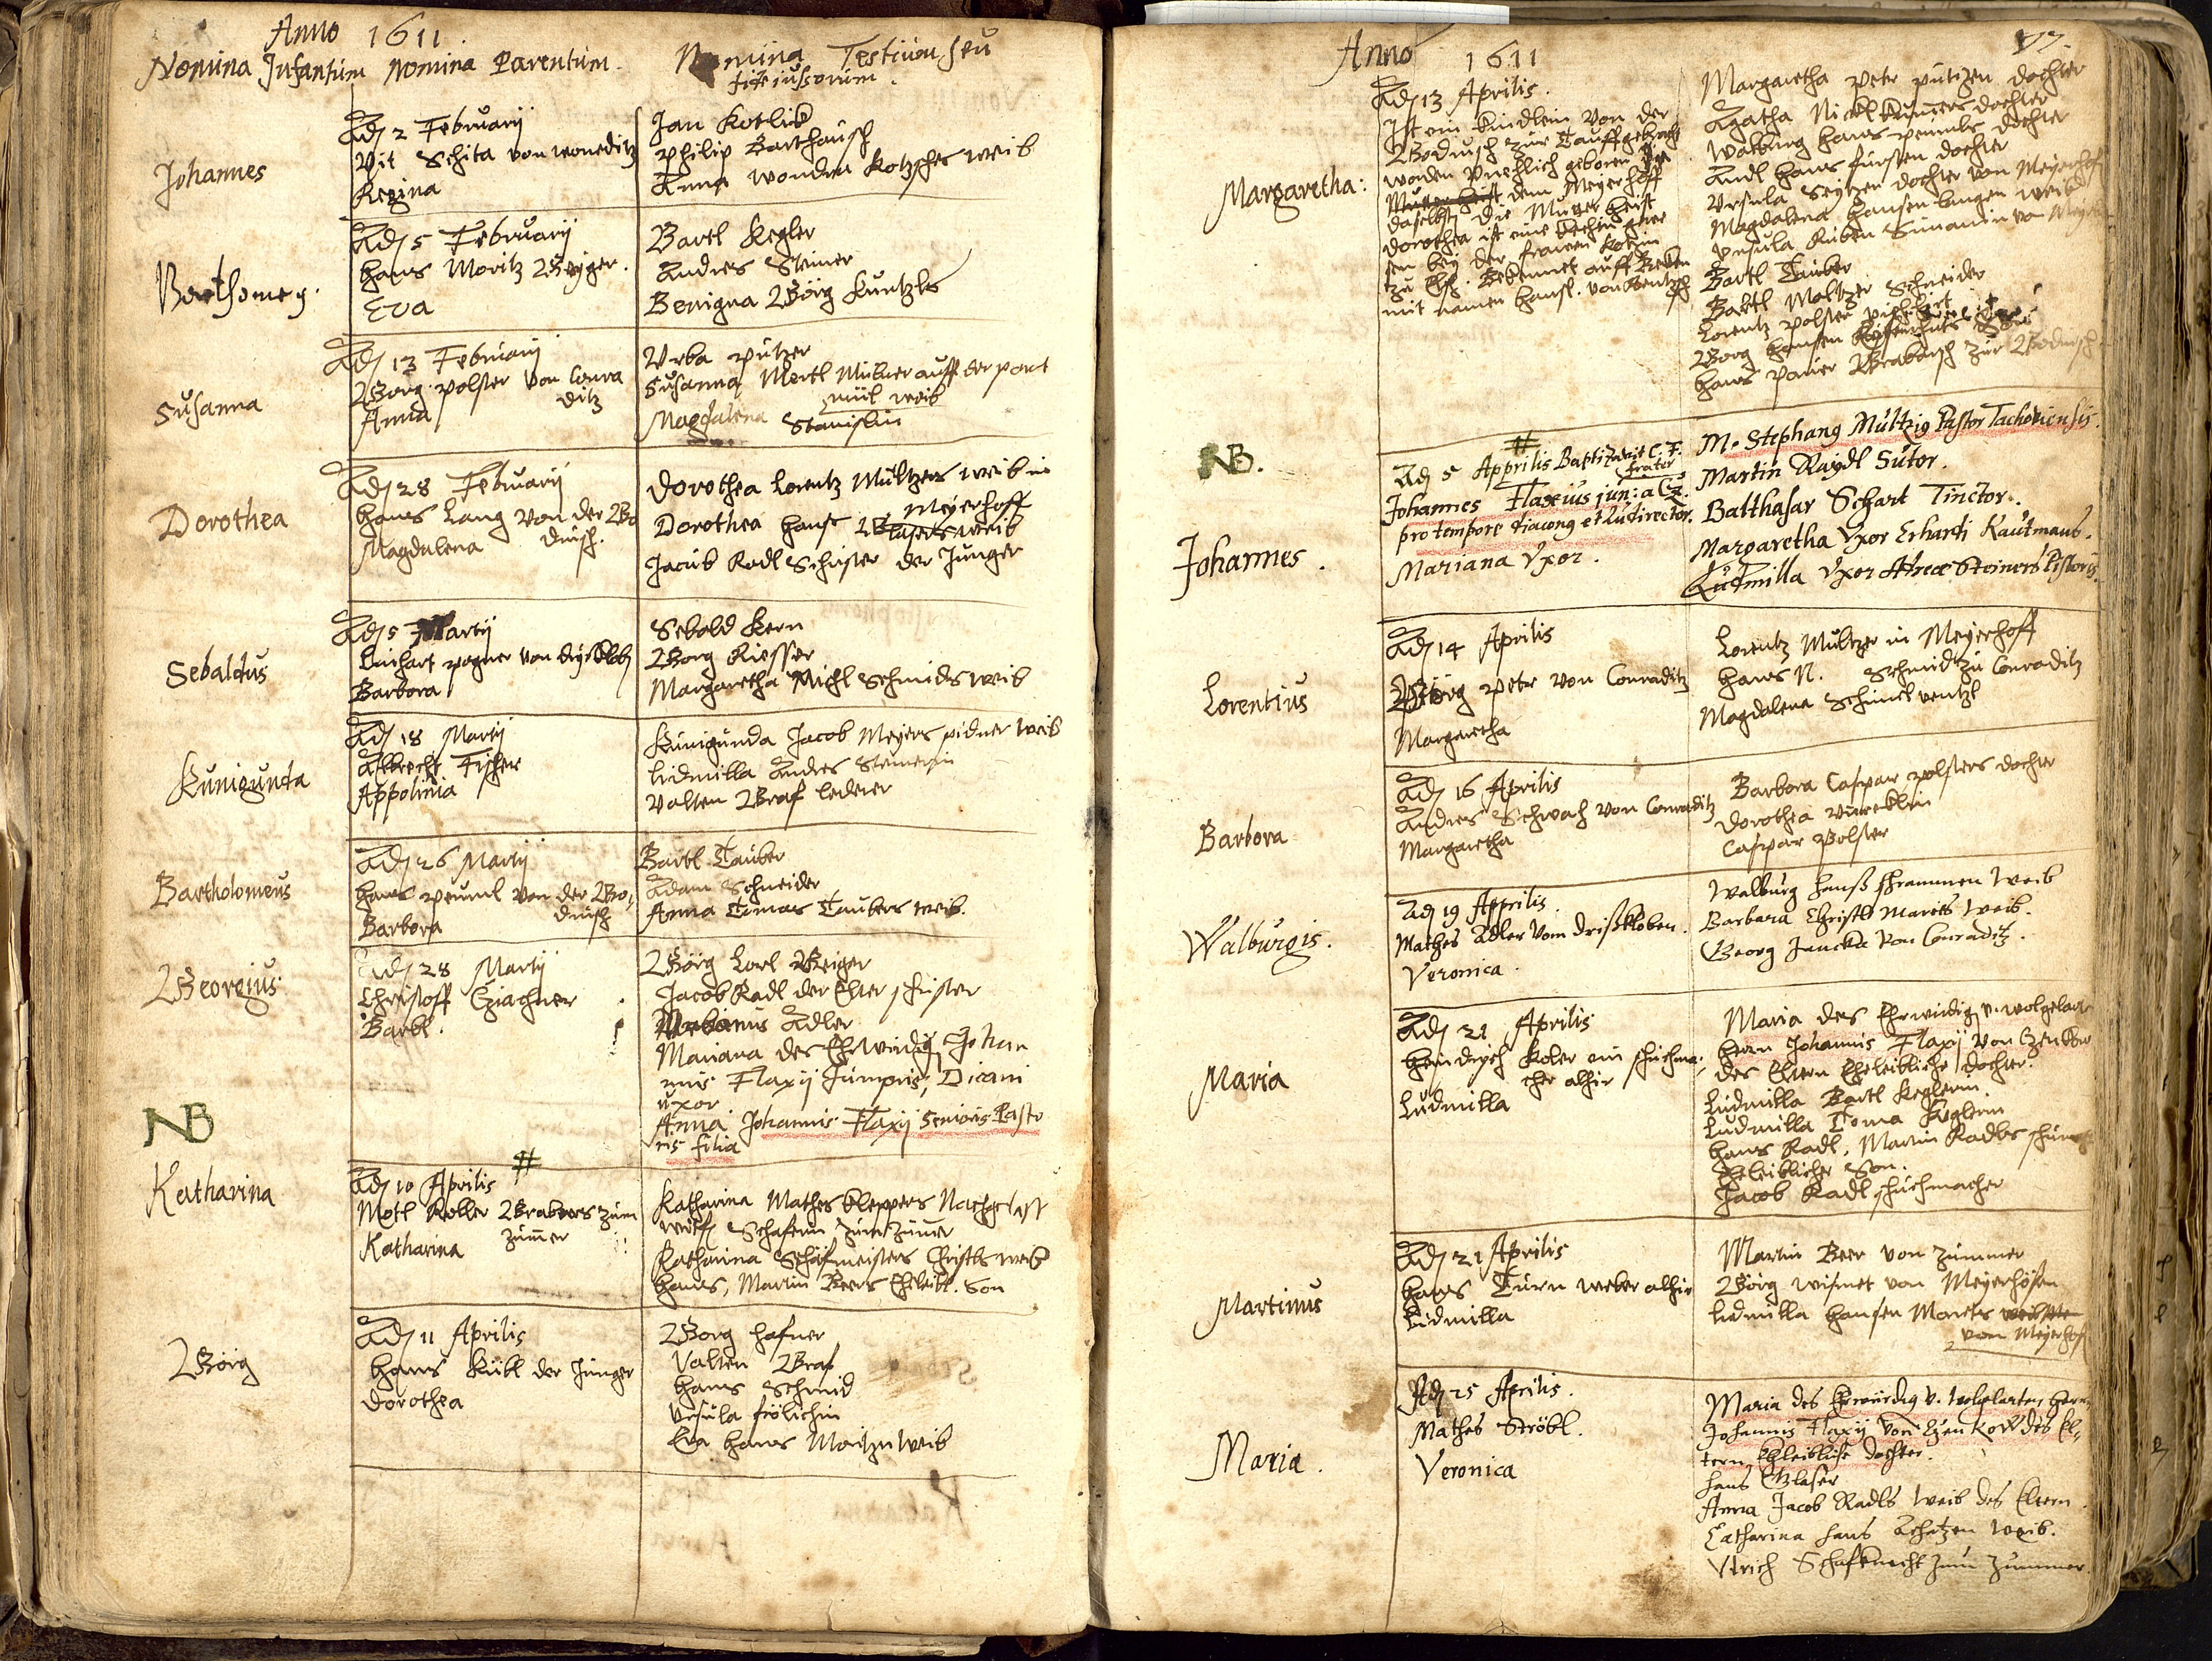 Anno 1611
Nomina Infantum Nomina Parentum. Nomina Testium seu
fideiussorum.
Johannes
Adj 2 Februarij
Vit Schita von woneditz
Regina
Jan Kotlick
Philip Barthausch
Anna wondra Kotzsches weib
Bartholomeus
Adj 5 Februarij
Hans Moritz Geyger.
Eva
Bartl Kegler
Andres Steiner
Benigna Görg Kuntzls
Susanna
Adj 13 Februarij
Görg polster von Conra
ditz
Anna
Urba putzer
Susanna Mertl Mulner auff der
mül weib
Magdalena Stanislin
Dorothea
Adj 28 Februarij
Hans Lang von der Go
drisch.
Magdalena
Dorothea Lorentz Multzers weib in
Meyerhoff
Dorothea Hans Glasers weib
Jacub Radl Schuster der Junger
Sebaldus
Adj 5 Martij
Linhart pogner von
Barbora
Sebold Kern
Georg Riesser
Margaretha Michl Schmids weib
Kunigunda
Adj 18 Martij
Albrecht Fischer
Appolinia
Kunigunda Jacob Meyers pidner weib
Lidmilla Andres Steinerin
Valten Graf lederer
Bartholomeus
Adj 26 Martij
Hans peuml von der Go,
drisch
Barbora
Bartl Tauber
Adam Schneider
Anna Tomas Taubers weib.
Georgius
Adj 28 Martij
Christoff Cziachner
Barbl.
Görg Lorl Geiger
Jacob Radl der Elter schuster
Urbanus Adler
Mariana des Ehrwirdig Johan
nis Flaxij Junioris, Diaconi
uxor
Anna Johannis Flaxij Senioris Pasto
ris filia
NB
Katharina
Adj 10 Aprilis
Motl Koller Grabers zum
zum̄er
Katharina
Katharina Mathes kleppers Nachgelass
Schaferin zum Zum̄er
Katharina Schafmeisters Christls weib
Hans, Martin Beers Eheleibl. Son
Görg
Adj 11 Aprilis
Hans Kübl der Junger
Dorothea
Georg Hafner
Valten Graf
Hans Schmid
Ursula frölichin
Eva Hans Moritzn weib
Anno 1611
77.
Margaretha:
Adj 13 Aprilis.
Ist ein kindlein von der
Godrisch zur Tauff gebracht
worden Unehlich geboren In
Mutter heist dem Meyerhoff
daselbst die Mutter heist
Dorothea ist eine
sen bey der frawen Kotzin
zu Bekennet auff
mit namen Hansl. von
Margaretha Petr putizen dochter
Agatha Nickl kumers dochter
Walburg Hans peumls dochter
Andl Hans fursten dochter
Ursula Seytzen dochter von Meyerhof
Magdalena Hansen langen weib
Ursula Ruben Simanin von Meyer
Bartl Tauber
Bartl Moltzer Schneider
Lorentz polster
Georg Hansen Son
Hans paur zur Godrisch
NB.
Johannes.
Adj 5 Apprilis Baptizavit C. F.
frater
Johannes Flaxius jun: a Cz.
pro tempore diaconus et ludirector.
Mariana Uxor.
M. Stephanus Multzig Pastor Tachoviensis.
Martin Raydl Sutor.
Balthasar Schart Tinctor.
Margaretha Uxor Erhardi Kautmans.
Ludmilla Uxor Andreæ Steiners Pistoris.
Lorentius
Adj 14 Aprilis
Görg Petr von Conraditz
Margaretha
Lorentz Multzer in Meyerhoff
Hans N. Schmid zu Conraditz
Magdalena Schimel wentzl
Barbora
Adj 16 Aprilis
Andres Schwab von Conraditz
Margaretha
Barbora Caspar polsters dochter
Dorothea
Caspar Polster
Walburgis.
Adj 19 Apprilis.
Mathes Adler vom drißkloben.
Veronica.
Walburg Hanß schrammen Weib
Barbara Christl Marets Weib.
Georg Jancka von Conraditz.
Maria
Adj 21 Aprilis
Heindrych Koler ein schuchma,
cher alhir
Ludmilla
Maria des Ehrwirdig v. wolgelart
Herrn Johannis Flaxij von Czenkow
des Eltern Eheleibliche dochter.
Ludmilla Bartl Keglerin
Ludmilla Toma Keglerin
Hans Radl, Martin Radls
Eheleiblicher Son.
Jacob Radl schuchmacher
Martinus
Adj 21 Aprilis
Hans Turn weber alhir
Lidmilla
Martin Beer von Zummer
Görg wismet von Meyerhöfen
Lidmilla Hansen Morets
vom Meyerhof
Maria.
Adj 25 Aprilis.
Mathes Ströbl.
Veronica
Maria des Ehrwirdig v. wolgelarten Herrn
Johannis Flaxij von Czenkow des El,
tern Eheleibliche dochter.
Hans Glaser
Anna Jacob Radls Weib des Eltern.
Catharina Hans Achatzen Weib.
Ulrich Schafknecht zum Zummer.